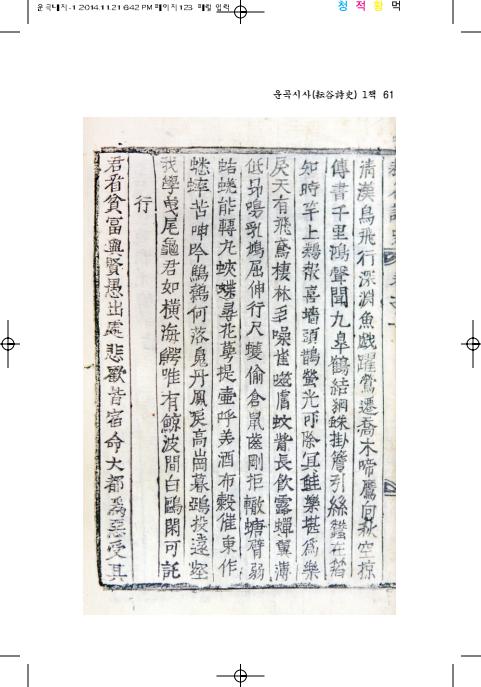 운곡내지-1 2014.11.21 6:42 PM 페이지123 매킨 입력
청 적 황 먹
운곡시사(耘谷詩史) 1책 61
淸漢鳥飛行深淵魚戱躍鶯遷喬木啼鴈向秋空掠
傳書千里鴻聲聞九皐鶴結網蛛掛簷引絲蠶在箔
知時竿上鷄報喜墻頭鵲螢光可除冥蛙樂堪爲樂
戾天有飛鳶棲林多噪雀噬膚蚊觜長飮露蟬翼薄
低昻鳴乳鳩屈伸行尺蠖偸倉鼠齒剛拒轍螗臂弱
蛣蜣能轉丸蛺蝶尋花萼提壺呼美酒布穀催東作
蟋蟀苦呻吟鷦鷯何落鳧丹鳳戾高崗暮鵶投遠壑
我學曳尾龜君如橫海鰐唯有鯨波間白鷗閑可託
行
君看貧富與賢愚出處悲歡皆宿命大都爲惡受其